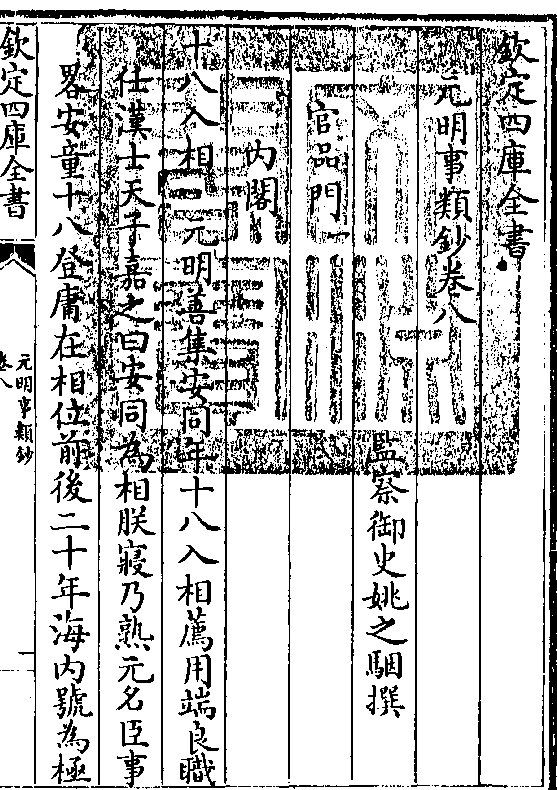 欽定四庫全書
元明事類鈔卷八
監察御史姚之駰撰
官品門一
内閣
十八入相 元明善集安同年十八入相薦用端良職
仕漢士天子嘉之曰安同為相朕寢乃熟元名臣事
畧安童十八登庸在相位前後二十年海内號為極
欽定四庫全書
元明事類鈔
卷八
一